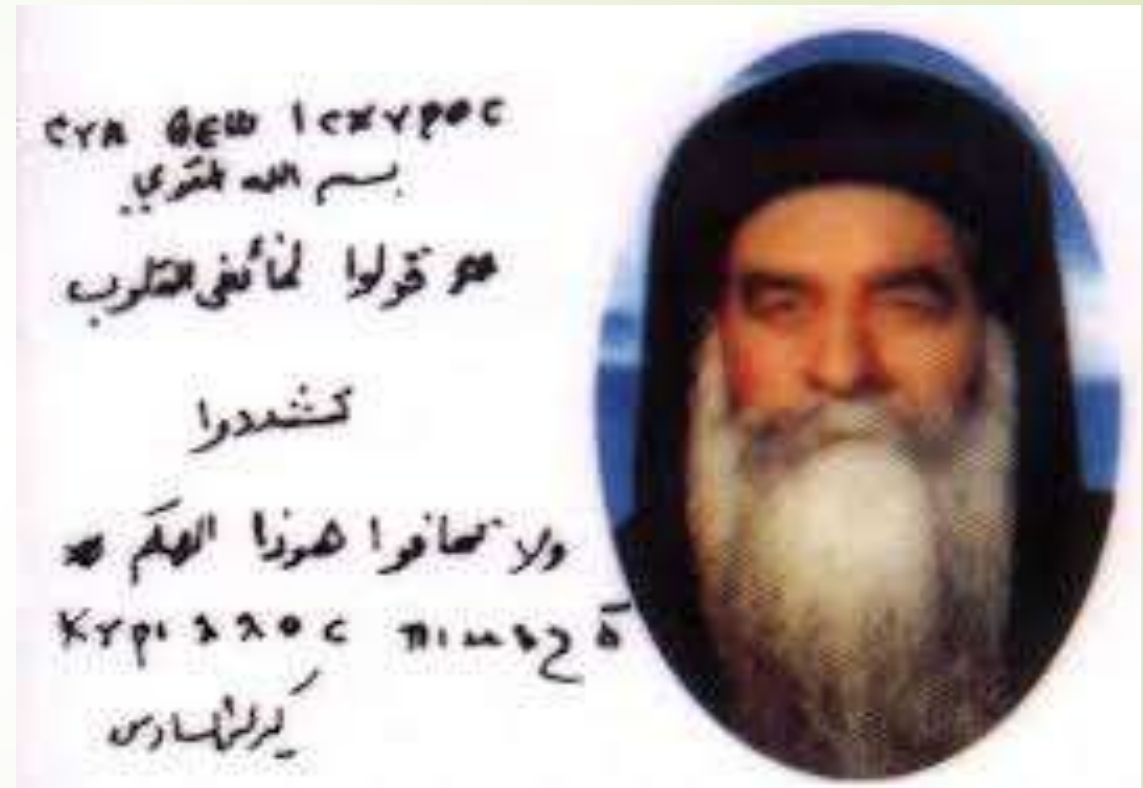 ⲤⲨⲚ ⲐⲈⲰ ⲒⲤⲬⲨⲢⲞⲤ
بسم الله القوي
قولوا لخائفي القلوب
تشددوا
ولا تخافوا هوذا الهكم
Ⲕⲩⲣⲓⲗⲗⲟⲥ ⲡⲓⲙⲁϩ ⲋ̅
كيرلس السادس